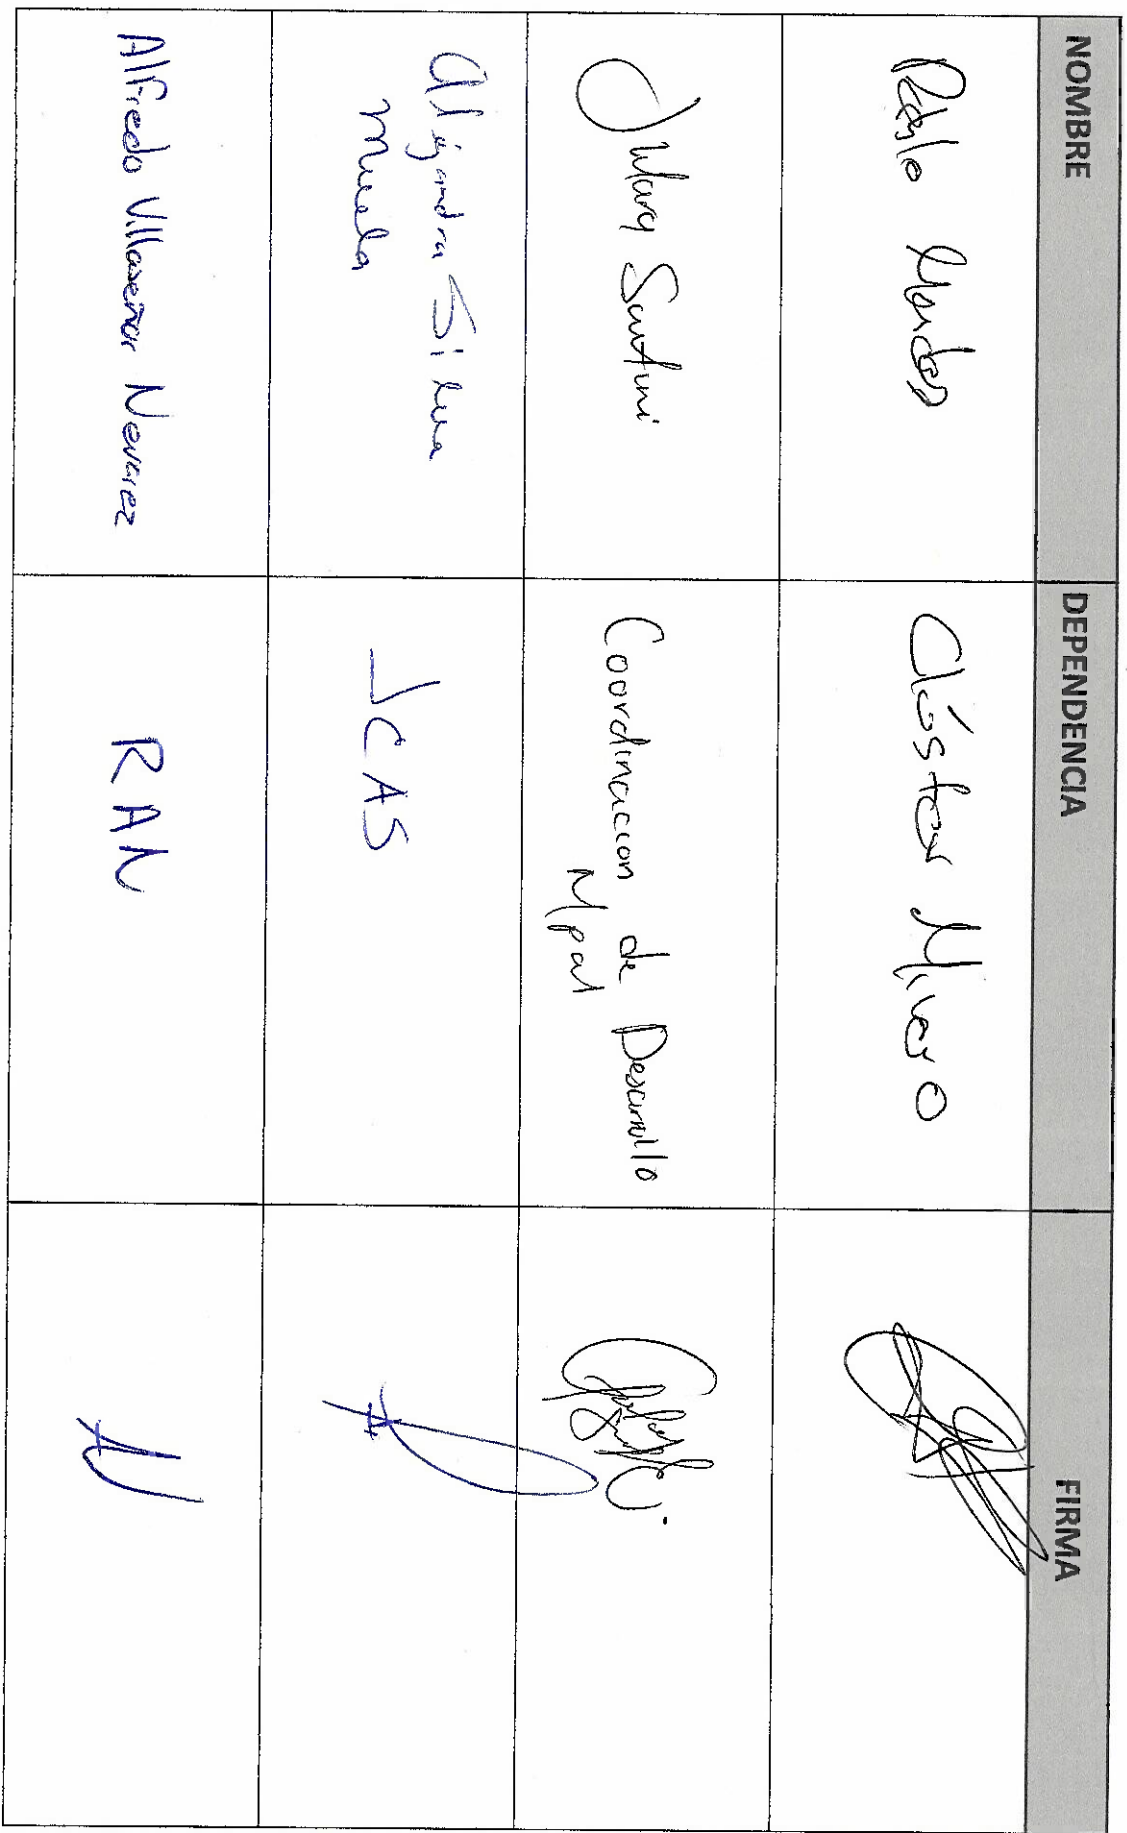 NOMBRE DEPENDENCIA FIRMA
Pablo Mendez Clúster Minero
Santini Coordinacion de Desarrollo
Mpal
Alejandra Silva JCAS
Muela
Alfredo Villaseñor Nevarez RAN